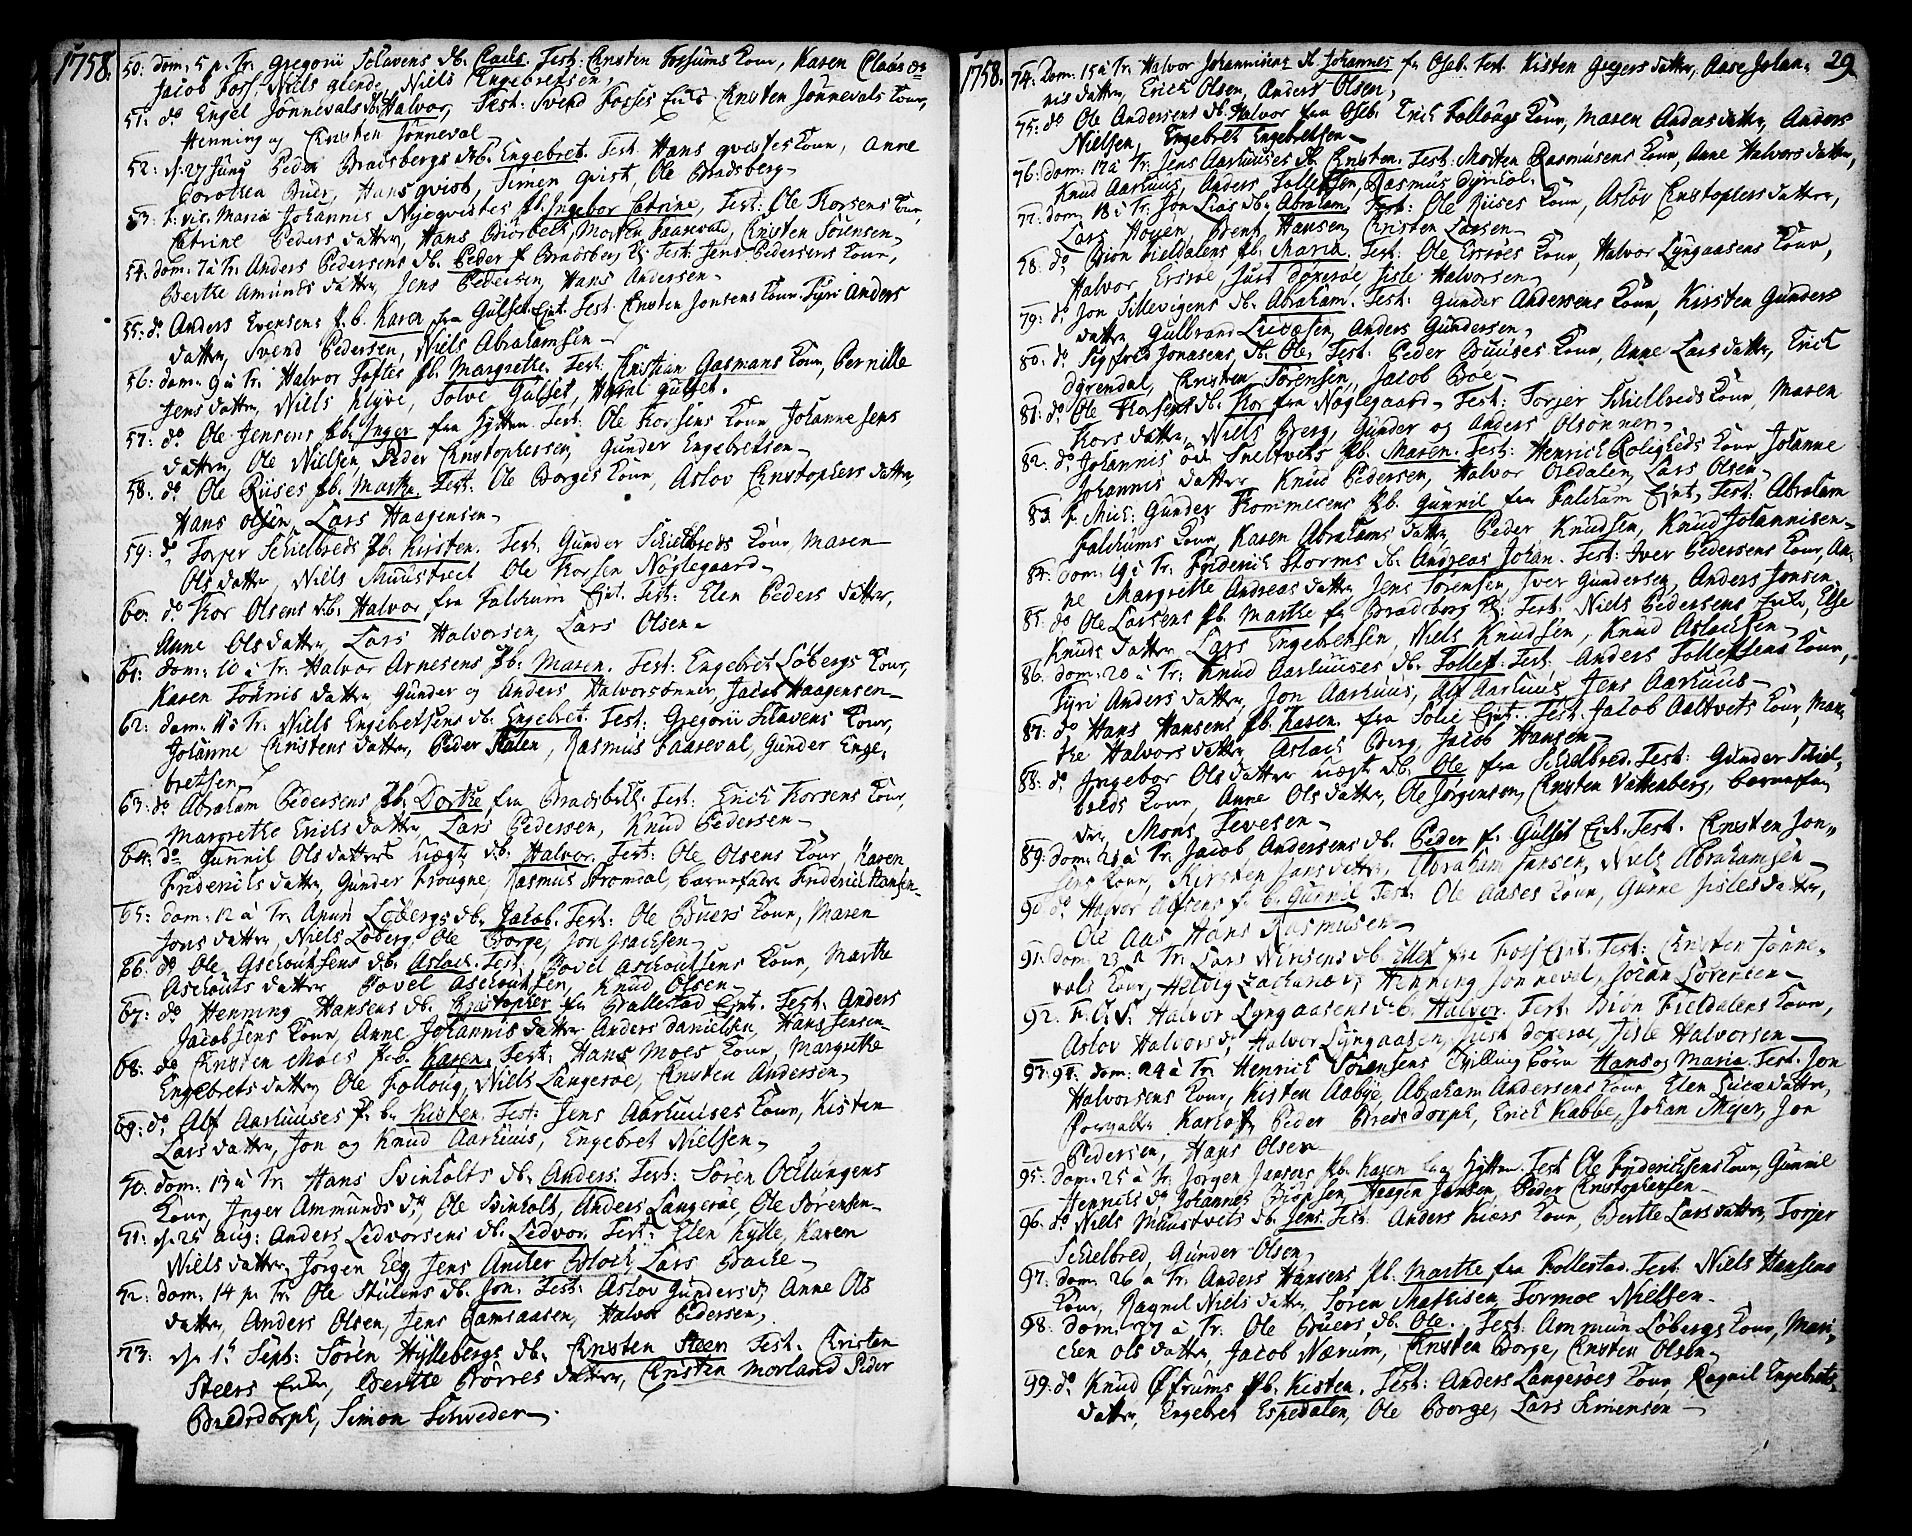 1758.
50. Dom. 5 p. Tr. Gregorii Sclavens db. Carls. Test: Christen Fossums Kone, Karen Claus d.
Jacob Foss, Niels Glende, Niels Engebretsen,
51. do Engel Jønnevals db. Halvor, Test: Svend Fosses Enke Christen Jønnevals Kone,
Henning og Christen Jønneval
52. d. 27 Jung Peder Bradsbergs db. Engebret. Test. Hans qvistes Kone, Anne
Dorothea Buer, Hans qvist, Simen qvist, Ole Bradsberg
53. F. vis. Mariæ Johannis Nyeqvistes pb. Ingebor Catrine, Test: Ole Korsens Kone,
Catrine Peders datter, Hans Biørbech, Morten Faareval, Christen Sørensen
54. dom. 7 à Tr. Anders Pedersens db. Peder f. Bradsberg Ej. Test: Jens Pedersens Kone,
Berthe Amunds datter, Jens Pedersen, Hans Andersen
55. do Anders Evensens pb. Karen fra Gulset Ejnt. Test. Christen Jonsens Kone Tyri Anders
datter, Svend Pedersen, Niels Abrahamsen
56. dom. 9 à Tr. Halvor Toftes pb. Margrethe. Test. Christian Gasmans Kone, Pernille
Jens datter, Niels Klyve, Tolve Gulset, Gulset.
57. do Ole Jensens pb. Inger fra Hytten. Test. Ole Korsens Kone Johanne Jens
datter, Ole Nielsen, Peder Christophersen, Gunder Engebretsen
58. do Ole Riises pb. Marthe. Test: Ole Borges Kone, Aslov Christophers datter
Hans Olsen, Lars Haagensen
59. do Torjer Schielbreds pb. Kirsten. Test. Gunder Schielbreds Kone, Maren
Ols datter, Niels Muustvedt Ole Korsen Nøglegaard
60. do Kor Olsens db. Halvor fra Falchum Ejnt. Test: Elen Peders datter,
Anne Ols datter, Lars Halvorsen, Lars Olsen
61. dom: 10 à Tr. Halvor Arnesens pb. Maren. Test: Engebret Løbergs Kone,
Karen Tønnis datter, Gunder og Anders Halvorsønner, Jacob Haagensen
62. dom: 11 à Tr. Niels Engebretsens db. Engebret. Test: Gregorii Sclavens Kone,
Johanne Christens datter, Peder Stulen, Rasmus Faareval, Gunder Enge-
bretsen
63. do Abraham Pedersens pb. Dorthe fra Bradsbech. Test: Erich Korsens Kone,
Margrethe Erichs datter, Lars Pedersen, Knud Pedersen
64. do Gunnil Ols datters uægte db. Halvor. Test: Ole Olsens Kone, Karen
Friderichs datter, Gunder Krougne, Rasmus Strømdal, barnefader Friderich Hansen
65. Dom: 12 à Tr. Amun Løbergs db. Jacob. Test: Ole Buers Kone, Maren
Jons datter, Niels Løberg, Ole Borge, Jon Isachsen
66. do Ole Aschoutsens db. Aslach. Test. Povel Aschoutsens Kone, Marthe
Aschouts datter Povel Aschoutsen, Knud Olsen
67. do Henning Hansens db. Christopher fra Ballestad Ejnt. Test. Anders
Jacobsens Kone, Anne Johannis datter Anders Danielsen, Hans Jensen
68. do Christen Moes pb. Karen. Test: Hans Moes Kone, Margrethe
Engebrets datter, Ole Follaug, Niels Langerøe, Christen Andersen
69. do Alf Aarhuuses pb. Kisten. Test: Jens Aarhuuses Kone, Kisten
Lars datter, Jon og Knud Aarhuus, Engebret Nielsen
70. dom. 13 à Tr. Hans Svinholts db. Anders. Test: Søren Ocklungens
Kone, Inger Ammunds dr, Ole Svinholt, Anders Langerøe, Ole Sørensen
71. d. 25 Aug: Anders Ledvorsens db. Ledvor. Test: Elen Hylle, Karen
Niels datter, Jørgen Eeg, Jens Ander Bloch, Lars Bache
72. dom: 14 p. Tr. Ole Stulens db. Jon. Test: Aslov Gunders d, Anne Ols
datter, Anders Olsen, Jens Ramsaasen, Halvor Pedersen,
73. d. 1. Sept: Søren Hyllebergs db. Christen Steen Test. Christen
Steers Enke, Berthe Børres datter, Christen Morland Peder
Bredsdorph, Simon Schweder
1758.
29
74. Dom. 15 à Tr. Halvor Johannisens db. Johannes fr. Oseb. Test. Kisten Gregers datter, Aase Johan-
nis datter, Erich Olsen, Anders Olsen,
75. do Ole Andersens db. Halvor fra Oseb. Erich Follaugs Kone, Maren Anders datter, Anders
Nielsen, Engebret Engebretsen
76. dom. 17 à Tr. Jens Aarhuuses db. Christen. Test: Morten Rasmusens Kone, Anne Halvors datter,
Knud Aarhuus, Anders Tollefsen, Rasmus Dyrkol.
77. dom. 18 à Tr. Jon Lias db. Abraham. Test: Ole Riises Kone, Aslov Christophers datter,
Lars Houen, Bent Hansen, Christen Larsen
78. do Biøn Fieldalens pb. Maria. Test: Ole Ersrøes Kone, Halvor Lyngaasens Kone,
Halvor Ersrøe, Just Doxerøe, Jisle Halvorsen
79. do Jon Sillevigens db. Abraham. Test: Gunder Andersens Kone, Kirsten Gunders
datter, Gulbrand Lucæsen, Anders Gundersen
80. do Sigfred Jonasens db. Ole. Test: Peder Bruuses Kone, Anne Lars datter, Erich
Dyrendal, Christen Sørensen, Jacob Boe
81. do Ole Korsens db. Kor fra Nøglegaard. Test: Torjer Schielbreds Kone, Maren
Kors datter, Niels Berg, Gunder og Anders Olsønner
82. do Johannis ved Sneltvets pb. Maren. Test: Henrich Roligheds Kone Johanne
Johannis datter Knud Pedersen, Halvor Oredalen, Lars Olsen
83. F. Mich: Gunder Kommesens pb. Gunnil fra Falchum Ejnt. Test: Abraham
Falchums Kone, Karen Abrahams datter, Peder Knudsen, Knud Johannisen
84. Dom: 19 à Tr. Friderich Storms db. Andreas Johan. Test: Iver Pedersens Kone, An-
ne Margrethe Andreas datter, Jens Sørensen, Iver Gundersen, Anders Jonsen
85. do Ole Larsens pb. Marthe fr. Bradsberg Ej. Test: Niels Pedersens Enke, Else
Knuds datter, Lars Engebretsen, Niels Knudsen, Knud Aslachsen
86. dom. 20 à Tr. Knud Aarhuuses db. Tollef. Test: Anders Tollefsens Kone,
Tyri Anders datter, Jon Aarhuus, Alf Aarhuus, Jens Aarhuus
87. do Hans Hansens pb. Karen fra Solie Ejnt. Test: Jacob Aaltvets Kone, Mar-
the Halvors datter, Aslach Berg, Jacob Hansen
88. do Ingebor Ols datter uægte db. Ole fra Schielbred. Test: Gunder Schiel-
breds Kone, Anne Ols datter, Ole Jørgensen, Christen Vattenberg, barnefa-
der, Mons Tevesen
89. dom: 21 à Tr. Jacob Andersens db. Peder f. Gulset Ejnt. Test. Christen Jon-
sens Kone, Kirsten Jans datter, Abraham Jansen, Niels Abrahamsen
90 do Halvor Alfsens p. b. Gunnil Test: Ole Aases Kone, Gunne Jisles datter,
Ole Aas Hans Rasmusen
91. Dom: 23 à Tr. Lars db. Ellef fra Foss Ejnt. Test: Christen Jønne-
vals Kone, Helvig Zachariæ d; Henning Jønnevel, Johan Sørensen
92. F. O. S. Halvor Lyngaasens db. Halvor. Test: Biøn Fieldalens Kone,
Aslov Halvors d; Halvor Lyngaasen, Just Doxerøe, Jisle Halvorsen
93. 94. dom. 24 à Tr. Henrich Sørensens Tvilling børn Hans og Maria. Test. Jon
Halvorsens Kone, Kisten Aabye, Abraham Andersens Kone, Elen Lucæ datter,
Forvalter Peder Bredsdorph, Erich Kabbe, Johan Meyer, Jon
Pedersen, Hans Olsen
95. dom: 25 à Tr. Jørgen Jansens pb. Karen fra Hytten. Test Ole Friderichsens Kone, Gunnil
Henrichs dr Johannes Haagen Jansen, Peder Christophersen
96. do Niels Muustvets db. Jens Test: Anders Kiærs Kone, Berthe Lars datter, Torjer
Schielbred, Gunder Olsen
97. dom. 26 à Tr. Anders Hansens pb. Marthe fra Follestad. Test. Niels Hansens
Kone, Ragnil Niels datter, Søren Mathisen Tormoe Nielsen
98. Dom. 27 à Tr. Ole Buers db. Ole. Test: Ammun Løbergs Kone, Mari-
chen Ols datter, Jacob Nærum, Christen Borge, Christen Olsen
99. do Knud Øfrums pb. Kisten. Test: Anders Langerøes Kone, Ragnil Engebrets-
datter, Engebret Espedalen, Ole Borge, Lars Simensen